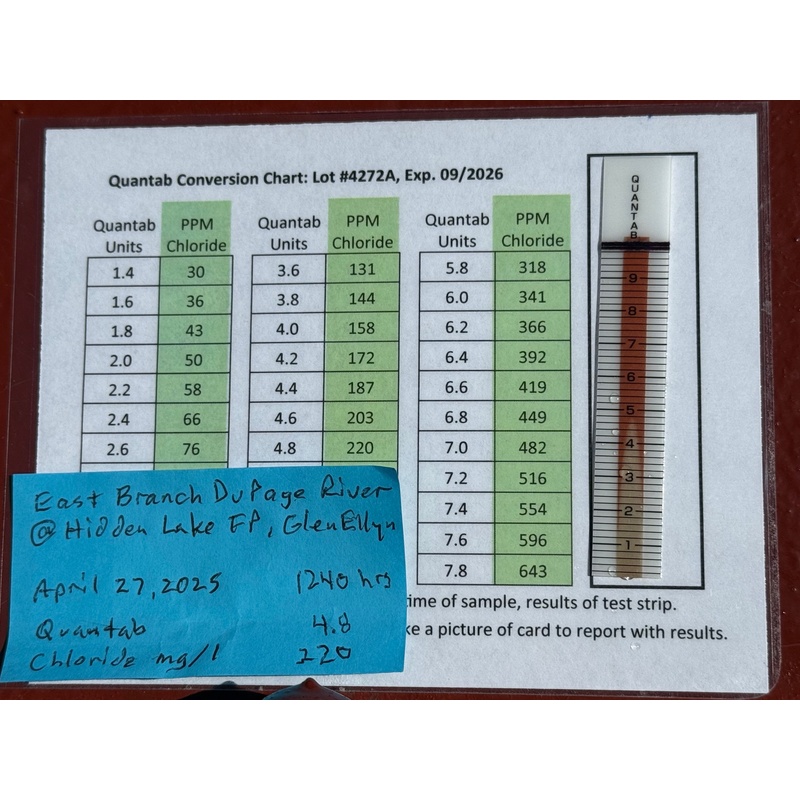 Quantab Conversion Chart: Lot #4272A, Exp. 09/2026
Quantab Units PPM Chloride
1.4 30
1.6 36
1.8 43
2.0 50
2.2 58
2.4 66
2.6 76
Quantab Units PPM Chloride
3.6 131
3.8 144
4.0 158
4.2 172
4.4 187
4.6 203
4.8 220
Quantab Units PPM Chloride
5.8 318
6.0 341
6.2 366
6.4 392
6.6 419
6.8 449
7.0 482
7.2 516
7.4 554
7.6 596
7.8 643
QUANTAB
9
8
7
6
5
4
3
2
1
East Branch DuPage River
@ Hidden Lake FP, Glen Ellyn
April 27, 2025 1240 hrs
Quantab 4.8
Chloride mg/l 220
ime of sample, results of test strip.
ke a picture of card to report with results.